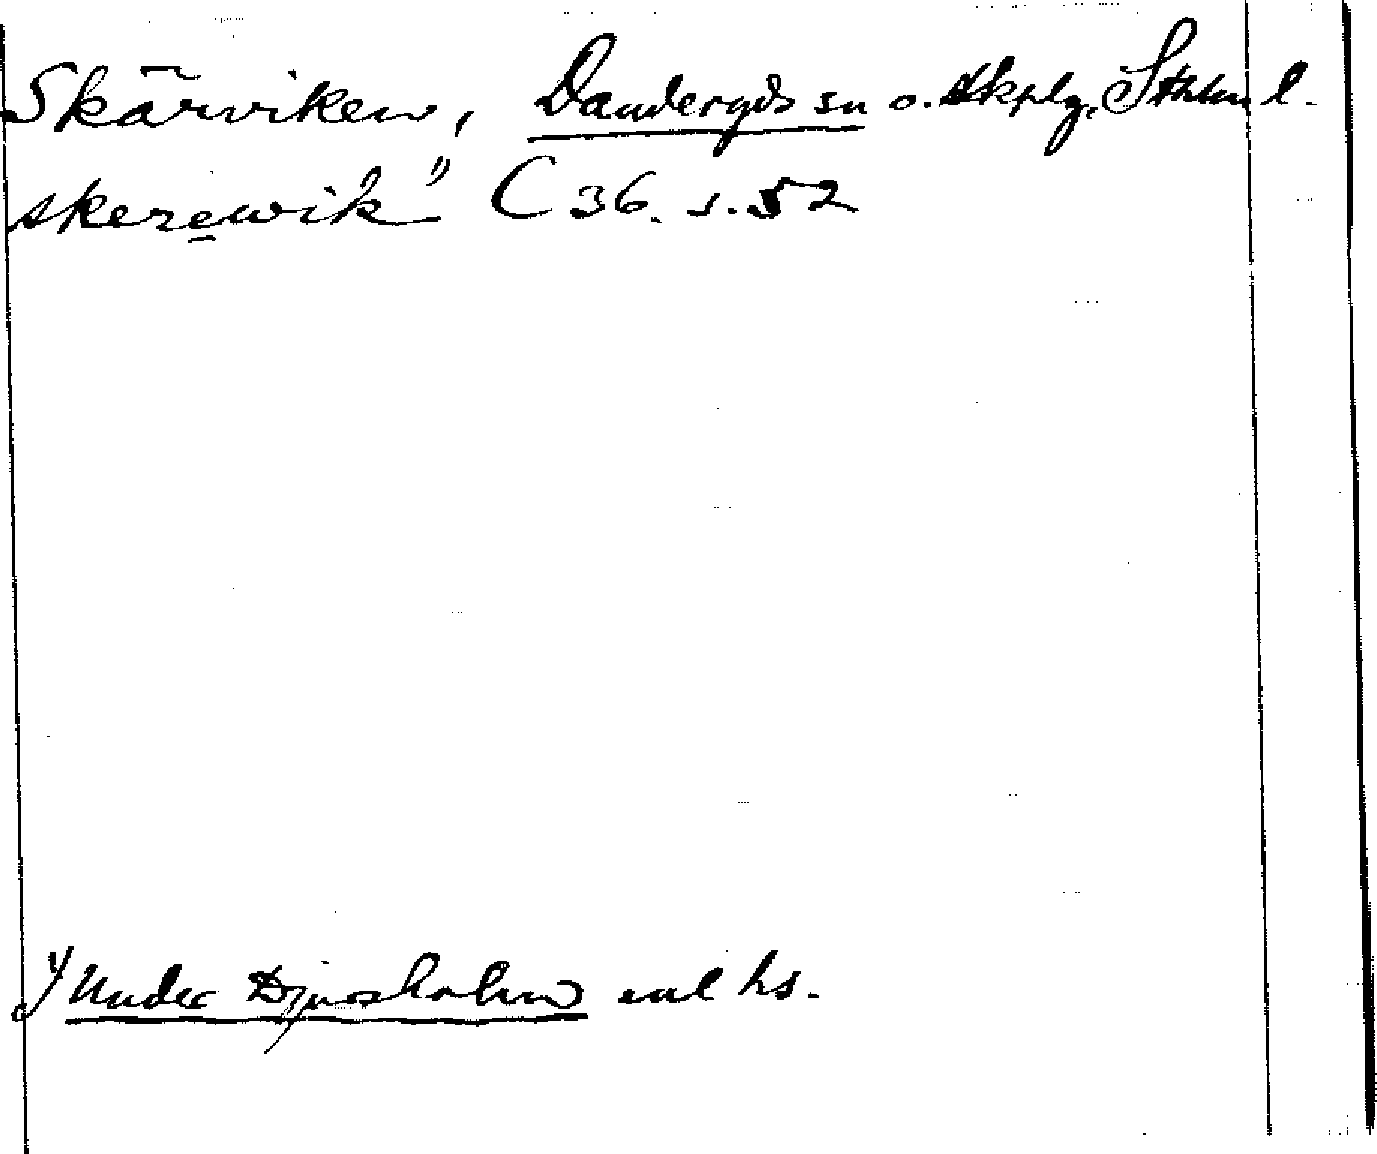 Skärviken, Danderyds sn o. skplg, Sthlm l.
skerewik 1) C 36. s. 52
1) Under Djursholm enl hs.